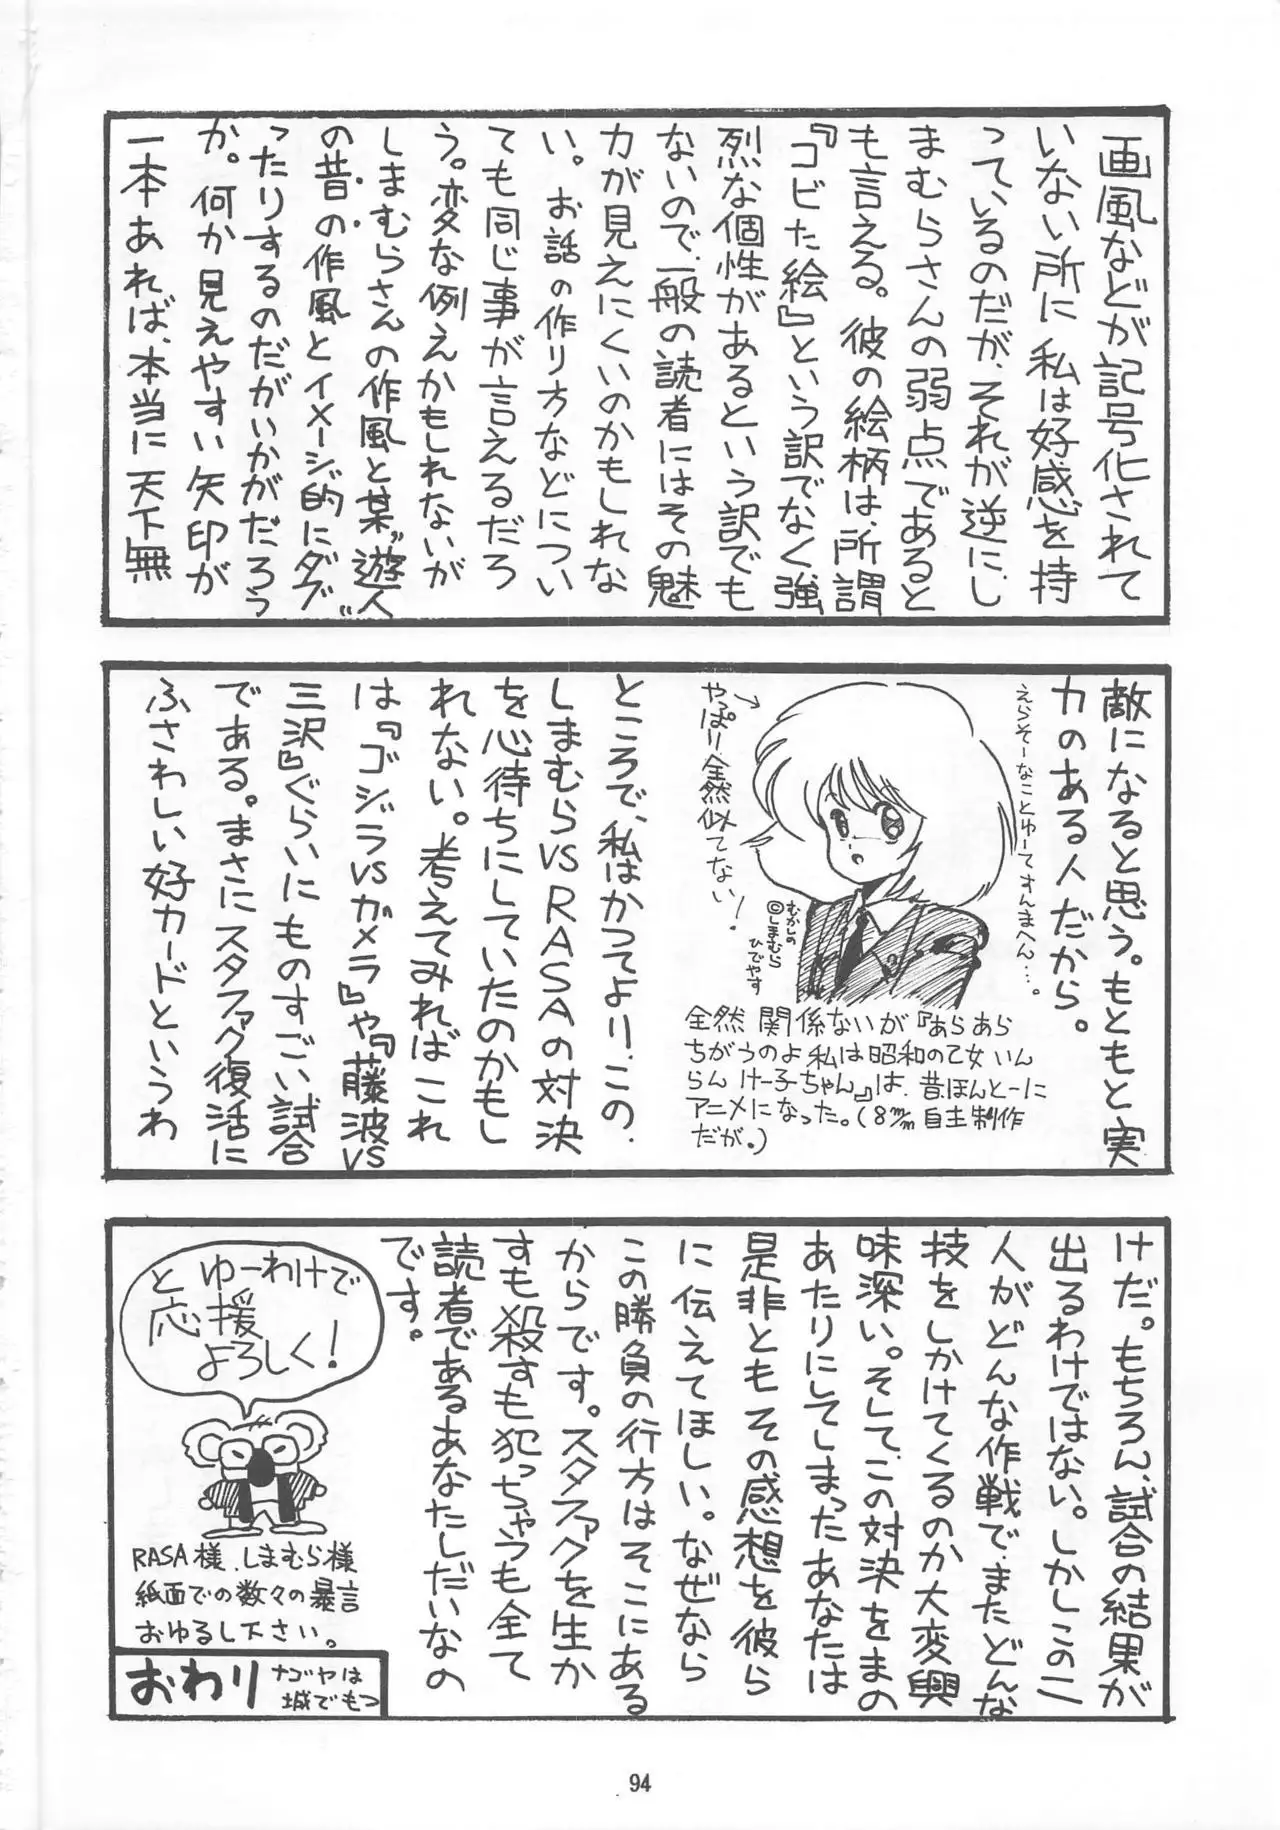 画風などが記号化されて
いない所に私は好感を持
っているのだが、それが逆にし
まむらさんの弱点であると
も言える。彼の絵柄は、所謂
『コビた絵』という訳でなく強
烈な個性があるという訳でも
ないので、一般の読者にはその魅
力が見えにくいのかもしれな
い。お話の作り方などについ
ても同じ事が言えるだろ
う。変な例えかもしれないが
しまむらさんの作風と某〝遊人〟
の昔の作風とイメージ的にダブ
ったりするのだがいかがだろう
か。何か見えやすい矢印が
一本あれば、本当に天下無
敵になると思う。もともと、実
力のある人だから。
えらそーなことゆーてすんまへん…。
やっぱり、全然似てない！
むかしの
©しまむら
ひでやす
全然関係ないが『あらあら
ちがうのよ私は昭和の乙女いん
らんけー子ちゃん』は、昔ほんとーに
アニメになった。(8m/m自主制作
だが。)
ところで、私はかつてより、この
しまむらVSRASAの対決
を心待ちにしていたのかもし
れない。考えてみればこれ
は『ゴジラVSガメラ』や『藤波VS
三沢』ぐらいにものすごい試合
である。まさにスタファグ復活に
ふさわしい好カードというわ
けだ。もちろん、試合の結果が
出るわけではない。しかしこの二
人がどんな作戦で、またどんな
技をしかけてくるのか大変興
味深い。そして、この対決をまの
あたりにしてしまったあなたは
是非ともその感想を彼ら
に伝えてほしい。なぜなら
この勝負の行方はそこにある
からです。スタファグを生か
すも殺すも犯っちゃうも全て
読者であるあなたしだいなの
です。
とゆーわけで
応援
よろしく！
RASA様、しまむら様
紙面での数々の暴言
おゆるし下さい。
おわり
ナゴヤは
城でもつ
94